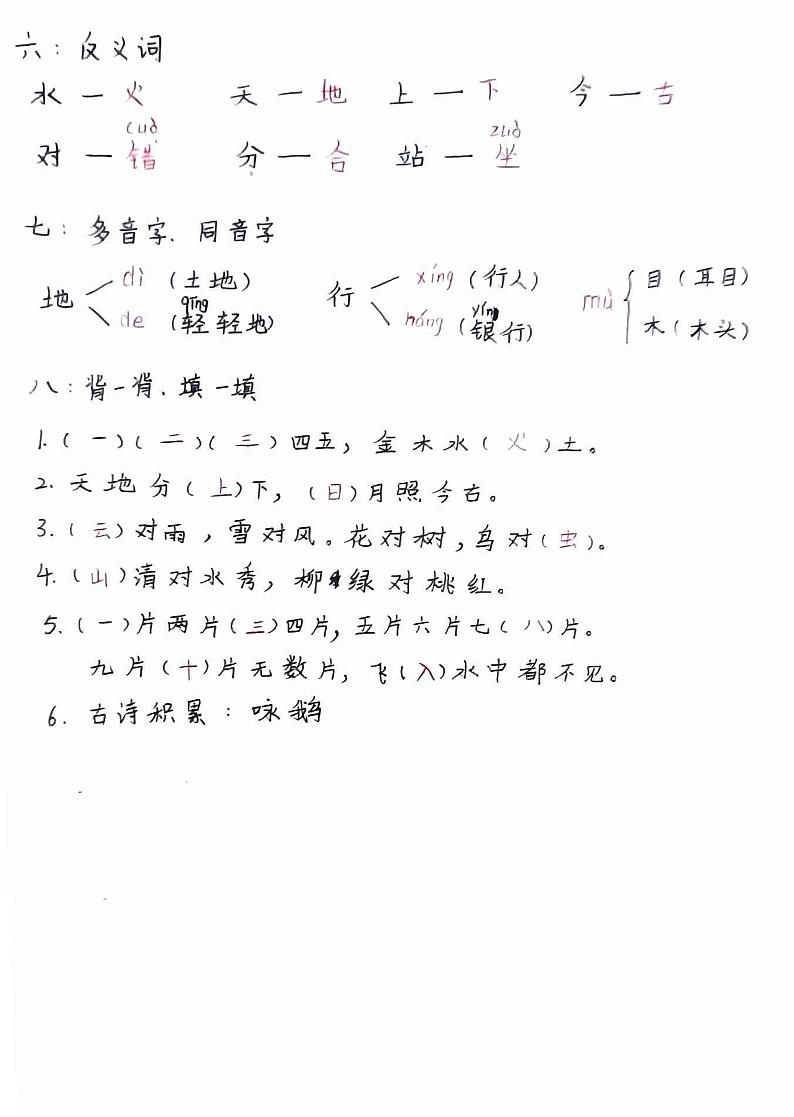 六：反义词
水 — 火 天 — 地 上 — 下 今 — 古
cuò zuò
对 — 错 分 — 合 站 — 坐
七：多音字. 同音字
地 dì (土地) 行 xíng (行人) mù 目 (耳目)
qīng yín
de (轻轻地) háng (银行) 木 (木头)
八：背一背. 填一填
1. (一)(二)(三)四五，金木水(火)土。
2. 天地分(上)下，(日)月照今古。
3. (云)对雨，雪对风。花对树，鸟对(虫)。
4. (山)清对水秀，柳绿对桃红。
5. (一)片两片(三)四片，五片六片七(八)片。
九片(十)片无数片，飞(入)水中都不见。
6. 古诗积累：咏鹅